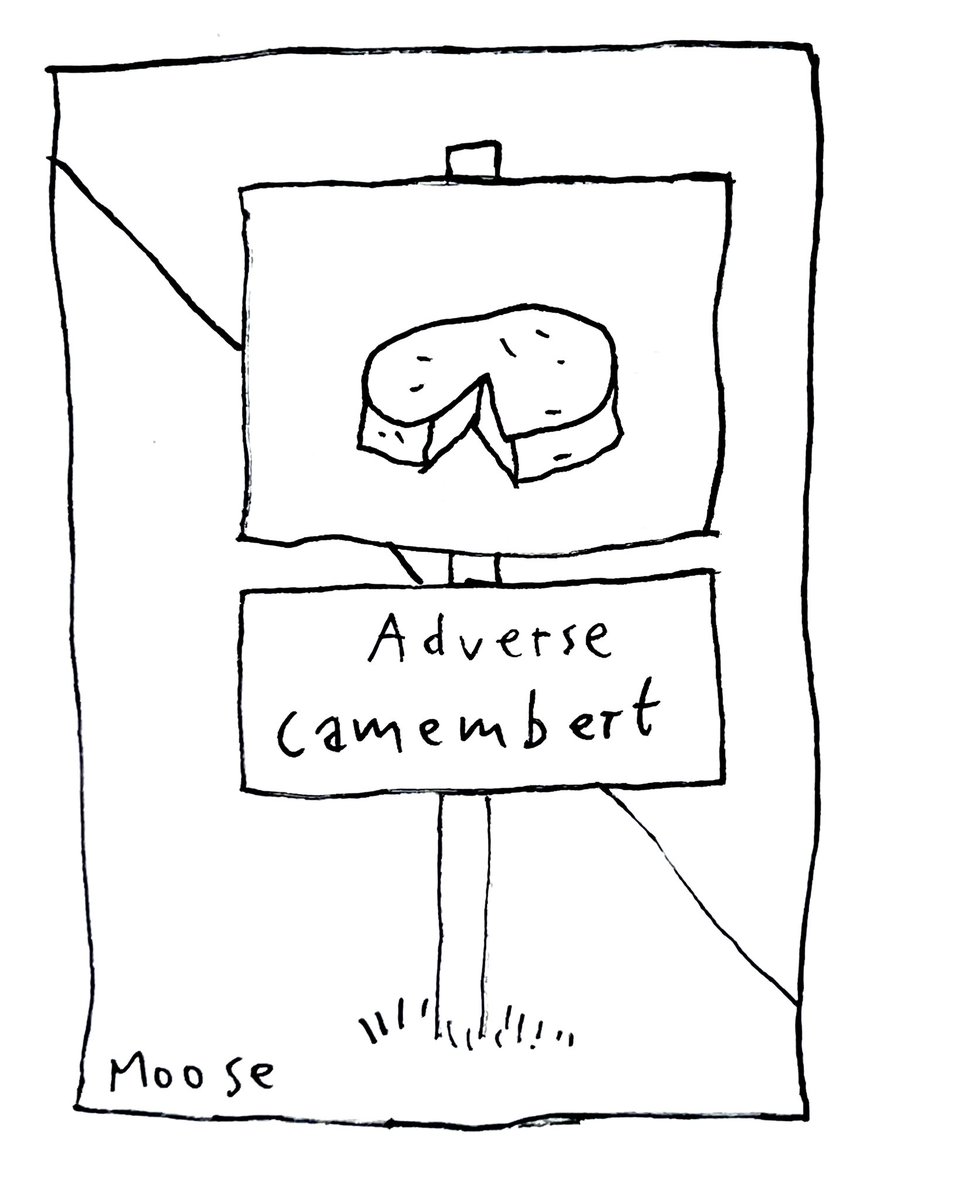 Adverse
camembert
Moose